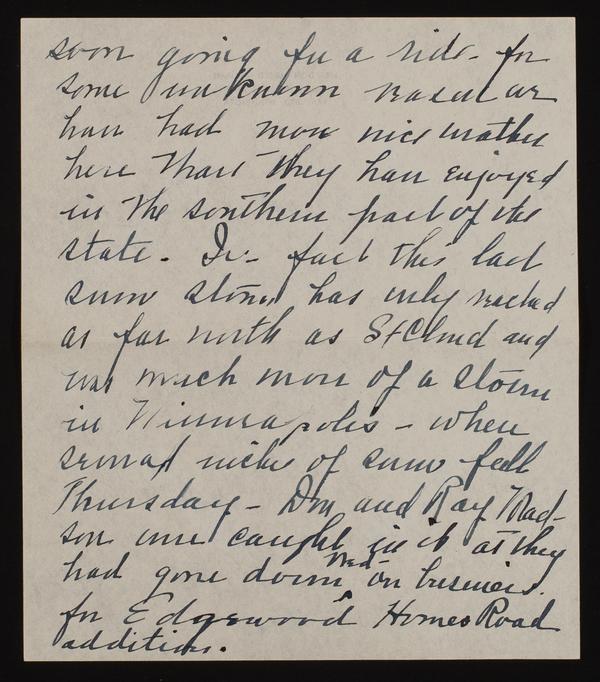 soon going for a ride - for
some unknown reason we
have had more nice weather
here than they have enjoyed
in the southern part of the
state. In fact this last
snow storm has only reached
as far north as St Cloud and
was much more of a storm
in Minneapolis - where
several inches of snow fell
Thursday - Don and Ray Mad-
son were caught in it as they
had gone down Wed. on business
for Edgewood Homes Road
addition.